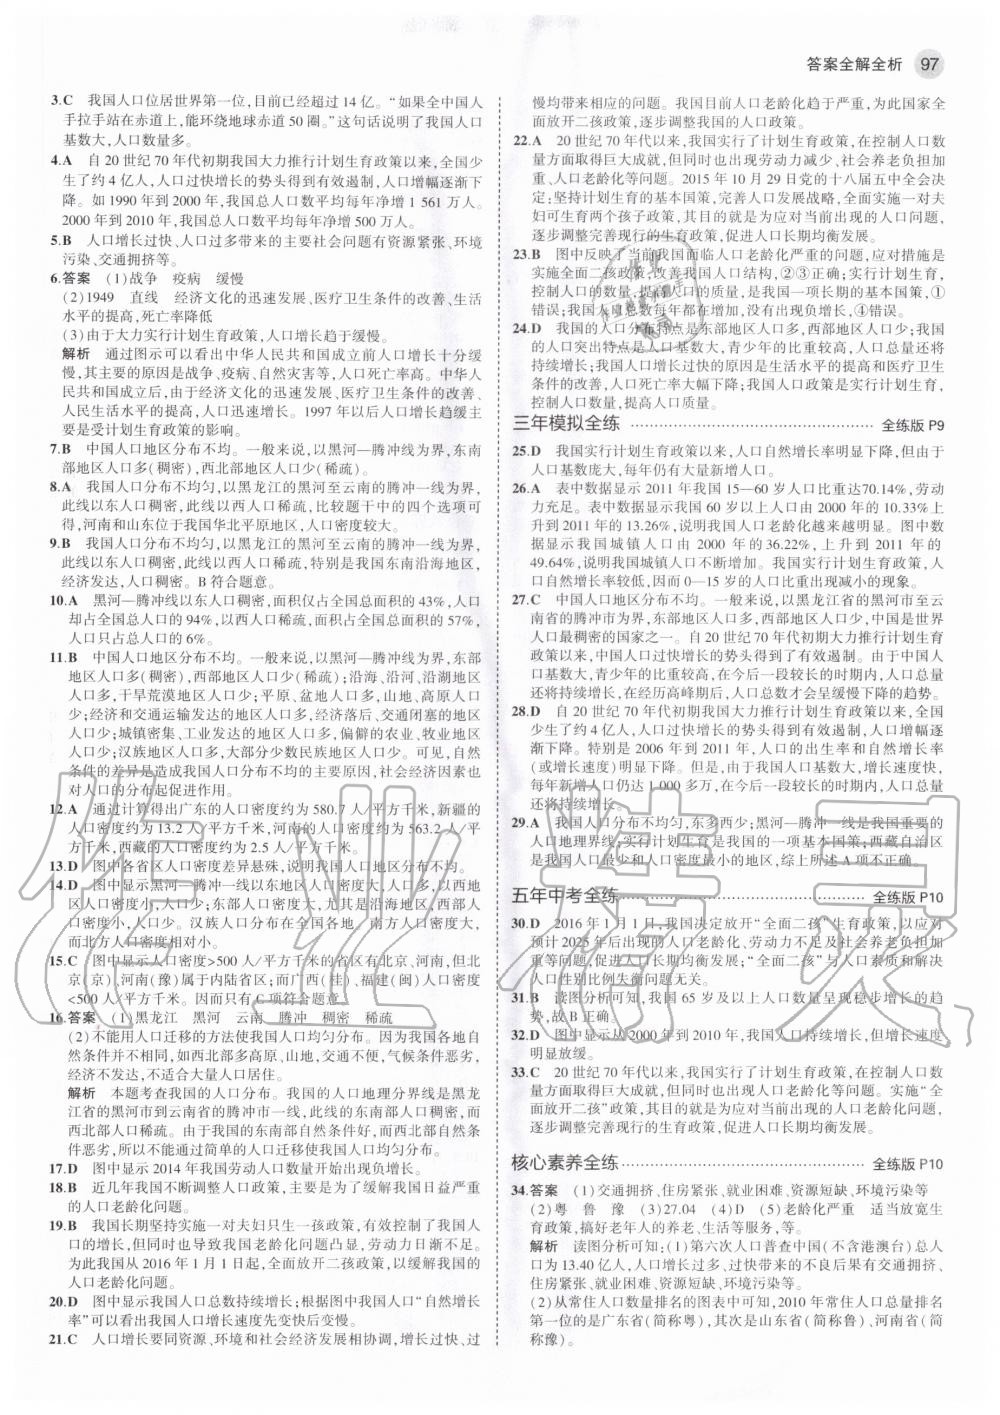 答案全解全析 97
3.C 我国人口位居世界第一位,目前已经超过14亿。“如果全中国人
手拉手站在赤道上,能环绕地球赤道50圈。”这句话说明了我国人口
基数大,人口数量多。
4.A 自20世纪70年代初期我国大力推行计划生育政策以来,全国少
生了约4亿人,人口过快增长的势头得到有效遏制,人口增幅逐渐下
降。如1990年到2000年,我国总人口数平均每年净增1 561万人。
2000年到2010年,我国总人口数平均每年净增500万人。
5.B 人口增长过快、人口过多带来的主要社会问题有资源紧张、环境
污染、交通拥挤等。
6.答案 (1)战争 疫病 缓慢
(2)1949 直线 经济文化的迅速发展、医疗卫生条件的改善、生活
水平的提高,死亡率降低
(3)由于大力实行计划生育政策,人口增长趋于缓慢。
解析 通过图示可以看出中华人民共和国成立前人口增长十分缓
慢,其主要的原因是战争、疫病、自然灾害等,人口死亡率高。中华人
民共和国成立后,由于经济文化的迅速发展、医疗卫生条件的改善、
人民生活水平的提高,人口迅速增长。1997年以后人口增长趋缓主
要是受计划生育政策的影响。
7.B 中国人口地区分布不均。一般来说,以黑河—腾冲线为界,东南
部地区人口多(稠密),西北部地区人口少(稀疏)。
8.A 我国人口分布不均匀,以黑龙江的黑河至云南的腾冲一线为界,
此线以东人口稠密,此线以西人口稀疏,比较题干中的四个选项可
得,河南和山东位于我国华北平原地区,人口密度较大。
9.B 我国人口分布不均匀,以黑龙江的黑河至云南的腾冲一线为界,
此线以东人口稠密,此线以西人口稀疏,特别是我国东南沿海地区,
经济发达,人口稠密。B符合题意。
10.A 黑河—腾冲线以东人口稠密,面积仅占全国总面积的43%,人口
却占全国总人口的94%,以西人口稀疏,面积占全国总面积的57%,
人口只占总人口的6%。
11.B 中国人口地区分布不均。一般来说,以黑河—腾冲线为界,东部
地区人口多(稠密),西部地区人口少(稀疏);沿海、沿河、沿湖地区
人口多,干旱荒漠地区人口少;平原、盆地人口多,山地、高原人口
少;经济和交通运输发达的地区人口多,经济落后、交通闭塞的地区
人口少;城镇密集、工业发达的地区人口多,偏僻的农业、牧业地区
人口少;汉族地区人口多,大部分少数民族地区人口少。可见,自然
条件的差异是造成我国人口分布不均的主要原因,社会经济因素也
对人口的分布起促进作用。
12.A 通过计算得出广东的人口密度约为580.7人/平方千米,新疆的
人口密度约为13.2人/平方千米,河南的人口密度约为563.2人/平
方千米,西藏的人口密度约为2.5人/平方千米。
13.D 图中各省区人口密度差异悬殊,说明我国人口地区分布不均。
14.D 图中显示黑河—腾冲一线以东地区人口密度大,以西地区人口
密度小,人口少;东部人口密度大,尤其是沿海地区,人口多,西北地
区人口密度小,人口少。汉族人口分布在全国各地。南方人口密度大,
而北方人口密度相对小。
15.C 图中显示人口密度>500人/平方千米的省区有北京、河南,但北
京(京)、河南(豫)属于内陆省区;而广西(桂)、福建(闽)人口密度
<500人/平方千米。因而只有C项符合题意。
16.答案 (1)黑龙江 黑河 云南 腾冲 稠密 稀疏
(2)不能用人口迁移的方法使我国人口均匀分布。因为我国各地自
然条件并不相同,如西北部多高原、山地,交通不便,气候条件恶劣,
经济不发达,不适合大量人口居住。
解析 本题考查我国的人口分布。我国的人口地理分界线是黑龙
江省的黑河市到云南省的腾冲市一线,此线的东南部人口稠密,而
西北部人口稀疏。由于我国的东南部自然条件好,而西北部自然条
件恶劣,所以不能通过简单的人口迁移使我国人口均匀分布。
17.D 图中显示2014年我国劳动人口数量开始出现负增长。
18.B 近几年我国不断调整人口政策,主要是为了缓解我国日益严重
的人口老龄化问题。
19.B 我国长期坚持实施一对夫妇只生一孩政策,有效控制了我国人
口的增长,但同时也导致我国老龄化问题凸显,劳动力日渐不足。
为此我国从2016年1月1日起,全面放开二孩政策,以缓解我国的
人口老龄化问题。
20.D 图中显示我国人口总数持续增长;根据图中我国人口“自然增长
率”可以看出我国人口增长速度先变快后变慢。
21.C 人口增长要同资源、环境和社会经济发展相协调,增长过快、过
慢均带来相应的问题。我国目前人口老龄化趋于严重,为此国家全
面放开二孩政策,逐步调整我国的人口政策。
22.A 20世纪70年代以来,我国实行了计划生育政策,在控制人口数
量方面取得巨大成就,但同时也出现劳动力减少、社会养老负担加
重、人口老龄化等问题。2015年10月29日党的十八届五中全会决
定;坚持计划生育的基本国策,完善人口发展战略,全面实施一对夫
妇可生育两个孩子政策,其目的就是为应对当前出现的人口问题,
逐步调整完善现行的生育政策,促进人口长期均衡发展。
23.B 图中反映了当前我国面临人口老龄化严重的问题,应对措施是
实施全面二孩政策,改善我国人口结构,②③正确;实行计划生育,
控制人口的数量,提高人口的质量,是我国一项长期的基本国策,①
错误;我国人口总数每年都在增加,没有出现负增长,④错误。
24.D 我国的人口分布特点是东部地区人口多,西部地区人口少;我
国的人口突出特点是人口基数大,青少年的比重比较高,人口总量还将
持续增长;我国人口增长过快的原因是生活水平的提高和医疗卫生
条件的改善,人口死亡率大幅下降;我国人口政策是实行计划生育,
控制人口数量,提高人口质量。
三年模拟全练 全练版P9
25.D 我国实行计划生育政策以来,人口自然增长率明显下降,但由于
人口基数庞大,每年仍有大量新增人口。
26.A 表中数据显示2011年我国15—60岁人口比重达70.14%,劳动
力充足。表中数据显示我国60岁以上人口由2000年的10.33%上
升到2011年的13.26%,说明我国人口老龄化越来越明显。图中数
据显示我国城镇人口由2000年的36.22%,上升到2011年的
49.64%,说明我国城镇人口不断增加。我国实行计划生育政策,自然
增长率较低,因而0—15岁的人口比重出现减小的现象。
27.C 中国人口地区分布不均。一般来说,以黑龙江省的黑河市至云
南省的腾冲市为界,东部地区人口多,西部地区人口少,中国是世界
上人口最稠密的国家之一。自20世纪70年代初期大力推行计划生育
政策以来,中国人口过快增长的势头得到了有效遏制。由于中国人
口基数大,青少年的比重较高,在今后一段较长的时期内,人口数量还
将持续增长,在经历高峰期后,人口总数才会呈缓慢下降的趋势。
28.D 自20世纪70年代初期我国大力推行计划生育政策以来,全国
少生了约4亿人,人口过快增长的势头得到有效遏制,人口增幅逐
渐下降。特别是2006年到2011年,人口的出生率和自然增长率
(或增长速度)明显下降。但是,由于我国人口基数大,增长速度快,
每年新增人口仍达1 000多万,在今后一段较长的时期内,人口总量
还将持续增长。
29.A 我国人口分布不均匀,东多西少;黑河—腾冲一线是我国重要的
人口地理界线;实行计划生育是我国的一项基本国策;西藏自治区
是我国人口最少和人口密度最小的地区,综上所述A项不正确。
五年中考全练 全练版P10
30.D 2016年1月1日,我国决定放开“全面二孩”生育政策,以应对
预计2025年后出现的人口老龄化、劳动力不足及社会养老负担加
重等问题,促进人口均衡发展;“全面二孩”与人口素质和解决
人口性别比例失衡问题无关。
31.B 读图分析可知,我国65岁及以上人口数量呈现稳步增长的趋
势,故B正确。
32.D 图中显示从2000年到2010年,我国人口持续增长,但增长速度
明显放缓。
33.C 20世纪70年代以来,我国实行了计划生育政策,在控制人口数
量方面取得巨大成就,但同时也出现人口老龄化等问题。实施“全
面放开二孩”政策,其目的就是为应对当前出现的人口老龄化问题,
逐步调整完善现行的生育政策,促进人口长期均衡发展。
核心素养全练 全练版P10
34.答案 (1)交通拥挤、住房紧张、就业困难、资源短缺、环境污染等
(2)粤 鲁 豫 (3)27.04 (4)D (5)老龄化严重 适当放宽生
育政策,搞好老年人的养老、生活等服务,等。
解析 读图分析可知:(1)第六次人口普查中国(不含港澳台)总人
口为13.40亿人,人口增长过多、过快带来的不良后果有交通拥挤、
住房紧张、就业困难、资源短缺、环境污染等。
(2)从常住人口数量排名的图表中可知,2010年常住人口总量排名
第一位的是广东省(简称粤),其次是山东省(简称鲁)、河南省(简
称豫)。
作业精灵